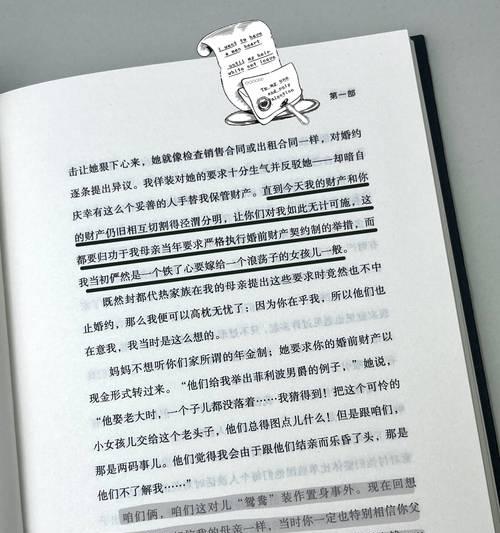 i want to have
a man heart
until my hair
white not leave
To my one
and only
valentine
第一部
击让她狠下心来，她就像检查销售合同或出租合同一样，对婚约
逐条提出异议。我佯装对她的要求十分生气并反驳她——却暗自
庆幸有这么个妥善的人手替我保管财产。直到今天我的财产和你
的财产仍旧相互切割得泾渭分明，让你们对我如此无计可施，这
都要归功于我母亲当年要求严格执行婚前财产契约制的举措，而
我当初俨然是一个铁了心要嫁给一个浪荡子的女孩儿一般。
既然封都代热家族在我的母亲提出这些要求时竟然也不中
止婚约，那么我便可以高枕无忧了：因为你在乎我，所以他们也
在意我，我当时是这么想的。
妈妈不想听你们家所谓的年金制；她要求你的婚前财产以
现金形式转过来。“他们给我举出菲利波男爵的例子，”她说，
“他娶老大时，一个子儿都没落着……我猜得到！把这个可怜的
小女孩儿交给这个老头子，他们总得图点儿什么！但是跟咱们，
那是两码事儿。他们觉得我会由于跟他们结亲而乐昏了头，那是
他们不了解我……”
咱们俩，咱们这对儿“鸳鸯”装作置身事外。现在回想
我的母亲一样，当时你一定也特别相信你父